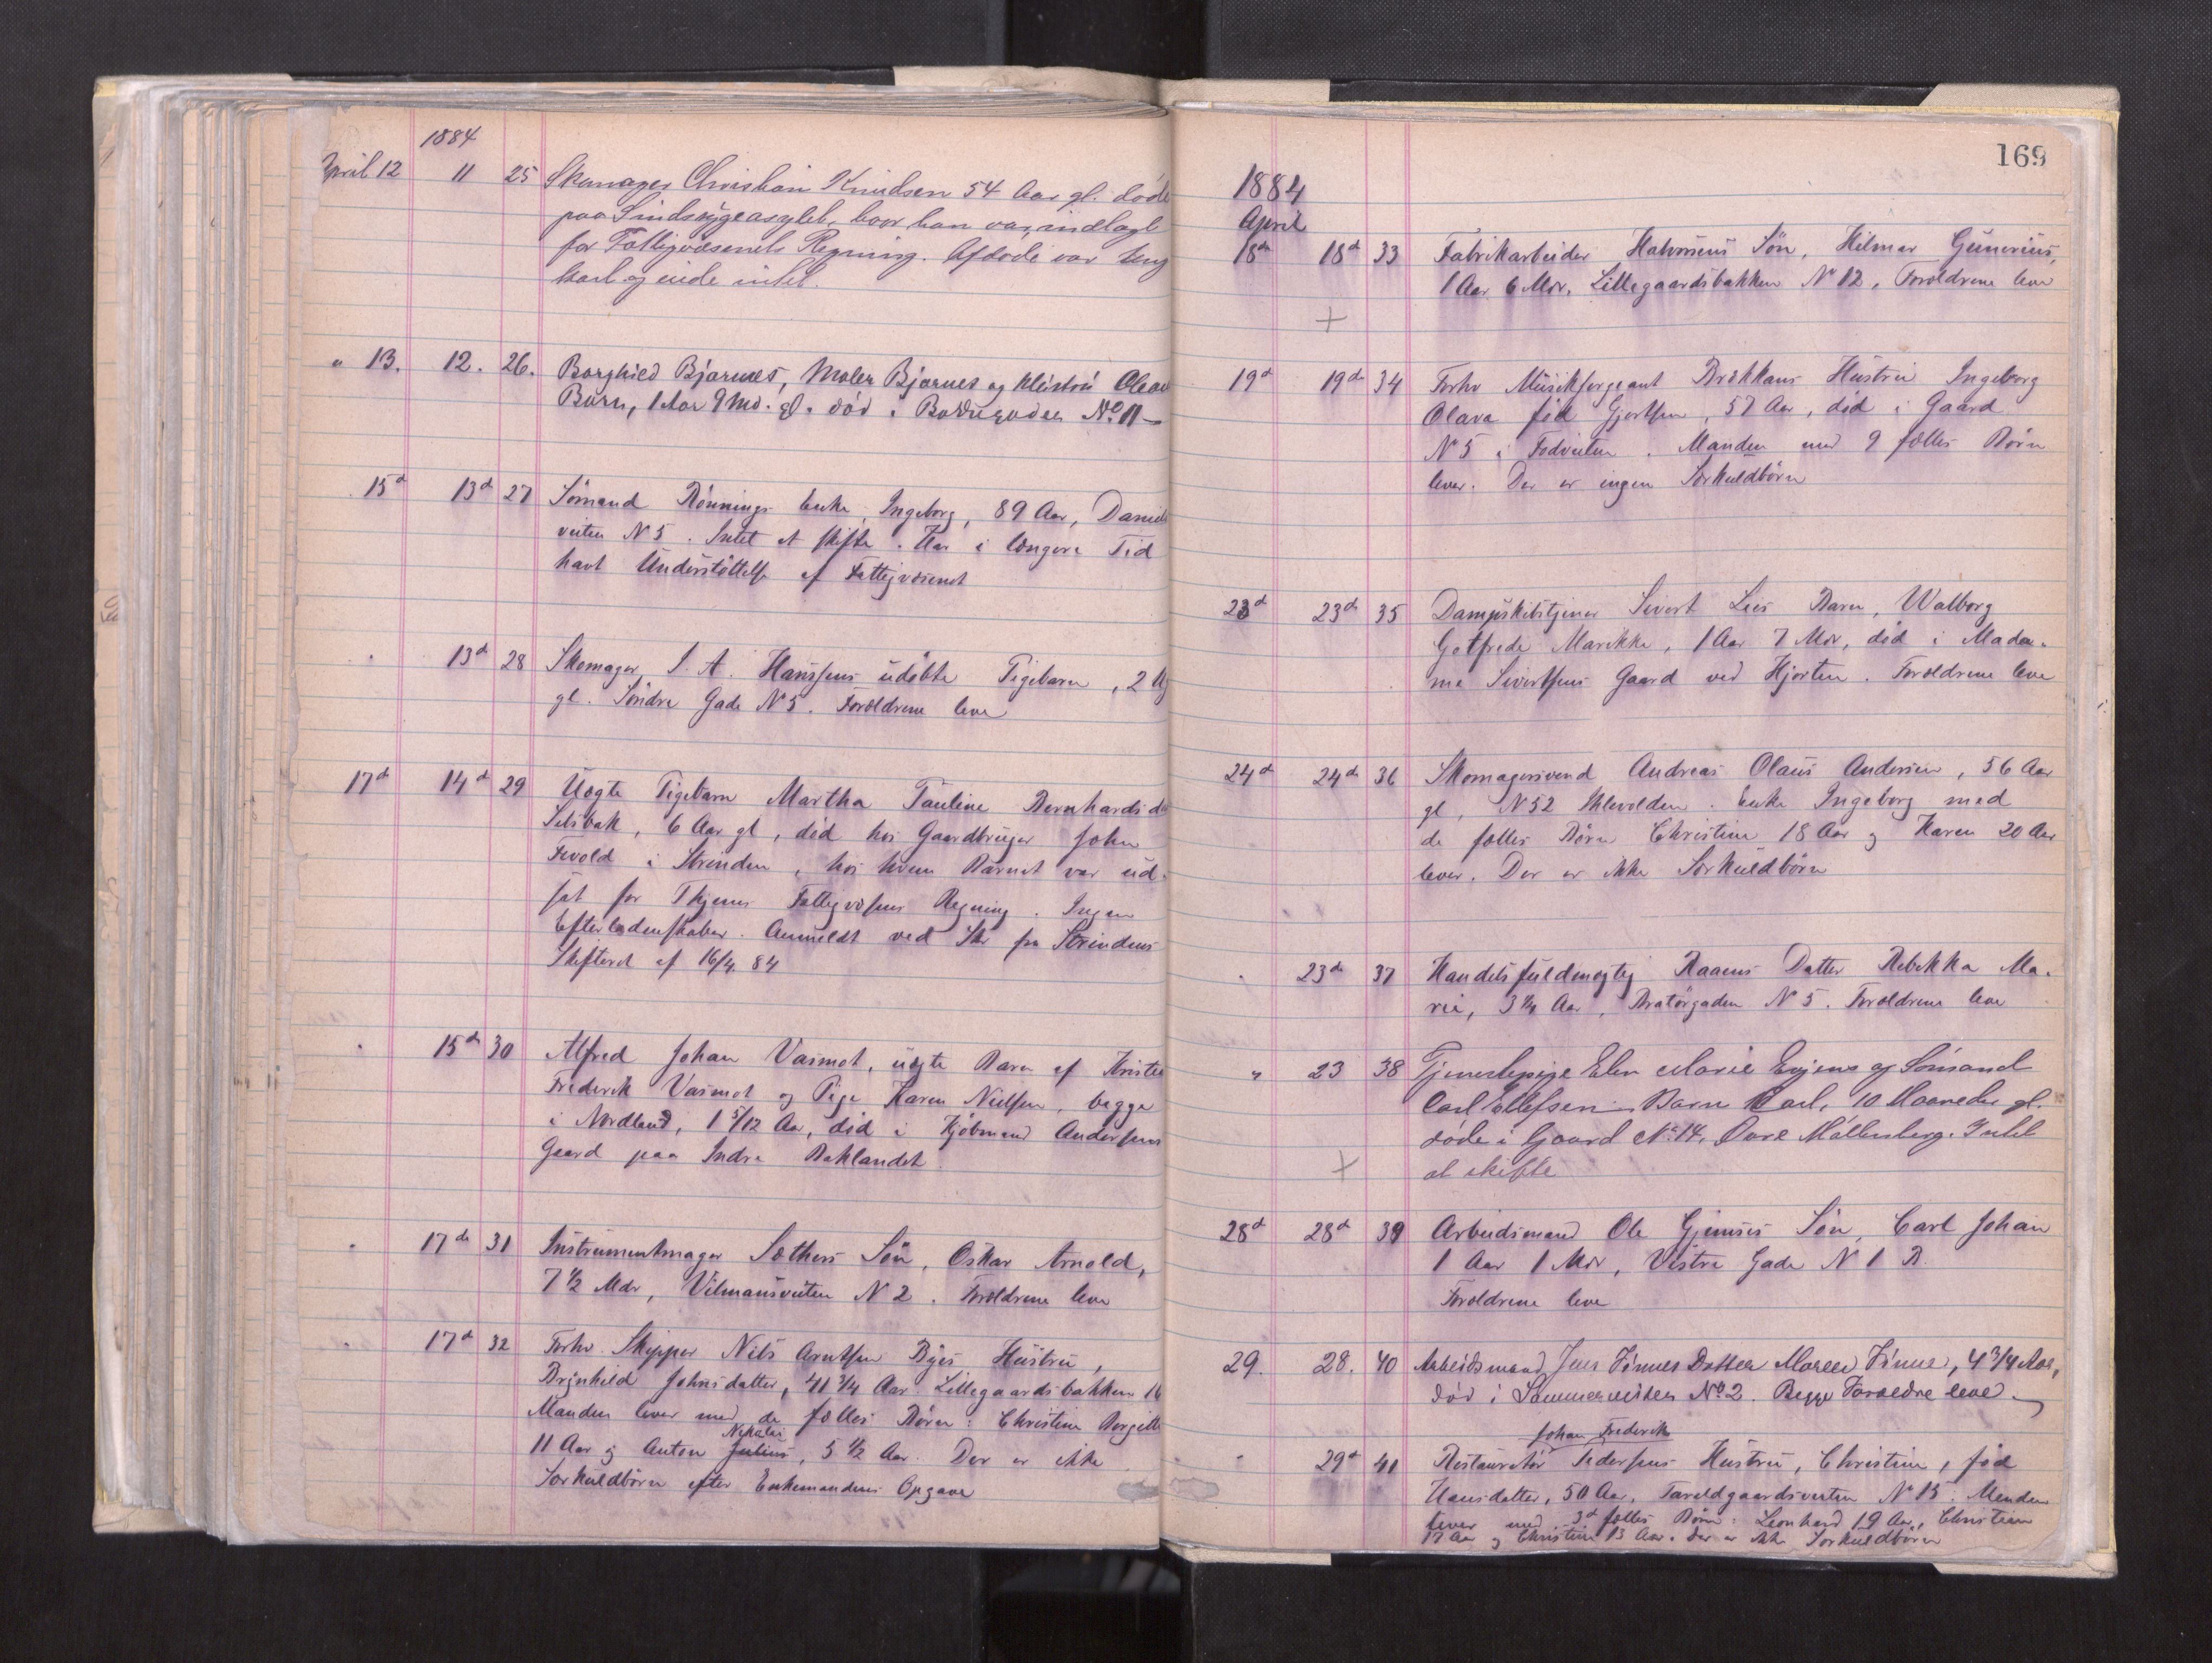 1884
April 12 11 25 Skomager Christian Knudsen 54 Aar gl. døde
paa Sindsygeasylet, hvor han var indlagt
for Fattigvæsenets Regning. Afdøde var Ung
karl og eiede intet.
" 13. 12. 26. Borghild Bjørnes, Maler Bjørnes og Hustru Oleas
Barn, 1 Aar 9 Md. gl. død i No 11
15d 13d 27 Sömand Rönnings Enke, Ingeborg, 89 Aar, Daniels
veiten N 5. Intet at skifte. Har i længere Tid
havt Understöttelse af Fattigvæsenet
13d 28 Skomager S. A. Hanssens udöbte Pigebarn, 2 Ug
gl. Söndre Gade N 5. Forældrene leve
17d 14d 29 Uægte Pigebarn Martha Pauline Bernhardsd
Selsbak, 6 Aar gl, död hos Gaardbruger John
Tvold i Strinden, hos hvem Barnet var ud-
sat for Thjems Fattigvæsens Regning. Ingen
Efterladenskaber. Anmeldt ved Skr fra Strindens
Skifteret af 16/4 84
15d 30 Alfred Johan Vasmot, uægte Barn af
Frederik Vasmot og Pige Karen Nielsen, begge
i Nordland, 1 5/12 Aar, död i Kjöbmand Andersens
Gaard paa Indre Baklandet
17d 31 Instrumentmager Sæthers Sön, Oskar Arnold,
7 1/2 Mdr, Vilmansveiten N 2. Forældrene leve
17d 32 Forhv. Skipper Nils Arntsen Byes Hustru,
Brynhild Johnsdatter, 41 3/4 Aar. Lillegaardsbakken 16
Manden lever med de fælles Börn: Christine Bergitte
Nikolai
11 Aar og Anton Julius, 5 1/2 Aar. Der er ikke
Særkuldbörn efter Enkemandens Opgave
169
1884
April
18d 18d 33 Fabrikarbeider Halvorsens Sön, Hilmar Gunerius,
1 Aar 6 Mdr. Lillegaardsbakken No 12, Forældrene leve
+
19d 19d 34 Forhv Musiksergeant Brækkans Hustru Ingeborg
Olava föd Gjertsen, 57 Aar, död i Gaard
No 5 i Fodveiten. Manden med 9 fælles Börn
lever. Der er ingen Særkuldbörn
23d 23d 35 Dampskibstjener Sivert Lies Barn, Walborg
Gotfrede Marikke, 1 Aar 7 Mdr, död i Mada-
me Sivertsens Gaard ved Hjorten. Forældrene leve
24d 24d 36 Skomagersvend Andreas Olaus Andersen, 56 Aar
gl, N 52 Ihlevolden. Enke Ingeborg med
de fælles Börn Christine 18 Aar og Karen 20 Aar
lever. Der er ikke Særkuldbörn
23d 37 Handelsfuldmægtig Raaens Datter Rebekka Ma-
rie, 3 1/4 Aar, Bratörgaden N 5. Forældrene leve
" 23 38 Tjenestepige Elen Marie Engens og Sömand
Carl Ellefsens Barn Carl, 10 Maaneder gl.
døde i Gaard No 14, Øvre Møllenberg. Intet
at skifte
+
28d 28d 39 Arbeidsmand Ole Gjimses Sön, Carl Johan
1 Aar 1 Mdr, Vestre Gade N 1 B.
Forældrene leve
29. 28. 40 Arbeidsmand Jens Datter Maren, 4 3/4 Aar,
død i Sommerveiten No 2. Begge Forældre leve.
Johan Frederik
29d 41 Restauratör Pedersens Hustru, Christine, föd
Hansdatter, 50 Aar, Taraldgaardsveiten No 13. Manden
lever med 3d fælles Börn: Leonhard 19 Aar, Christian
17 Aar og Christine 13 Aar. Der er ikke Særkuldbörn